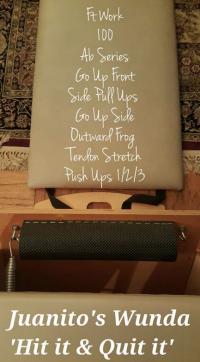 Ft Work
100
Ab Series
Go Up Front
Side Pull Ups
Go Up Side
Outward Frog
Tendon Stretch
Push Ups 1/2/3
Juanito's Wunda
'Hit it & Quit it'